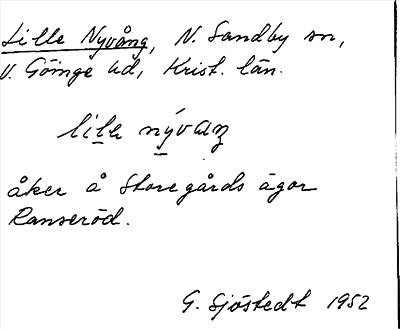 Lille Nyvång, N. Sandby sn,
V. Göinge hd, Krist. län.
lila nývaŋ
åker å Storegårds ägor
Ranseröd.
G. Sjöstedt 1952